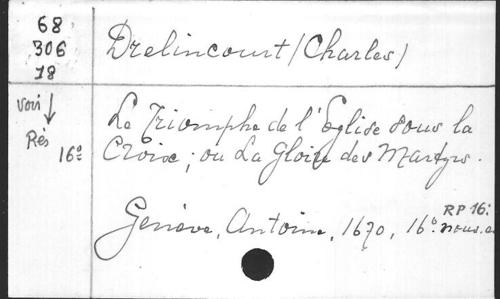 68
306
18
Drelincourt (Charles)
voir
Rés
16º
Le Triomphe de l'Eglise sous la
Croix; ou La Gloire des Martyrs.
RP 16:
Genève, Antoine, 1670, 16º